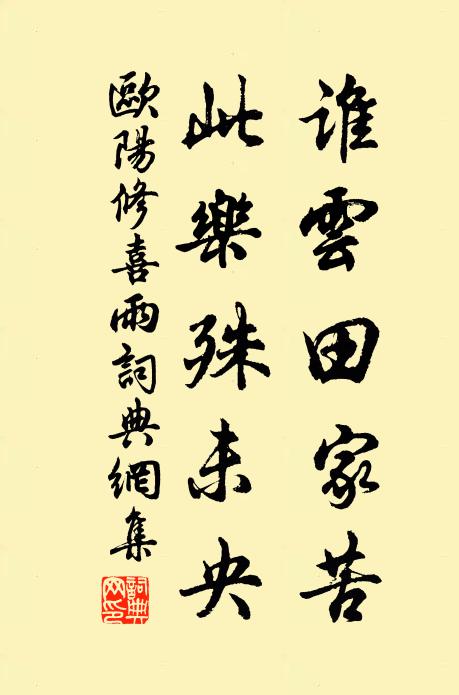 誰雲田家苦
此樂殊未央
歐陽修喜雨詞典網集
詞典網印